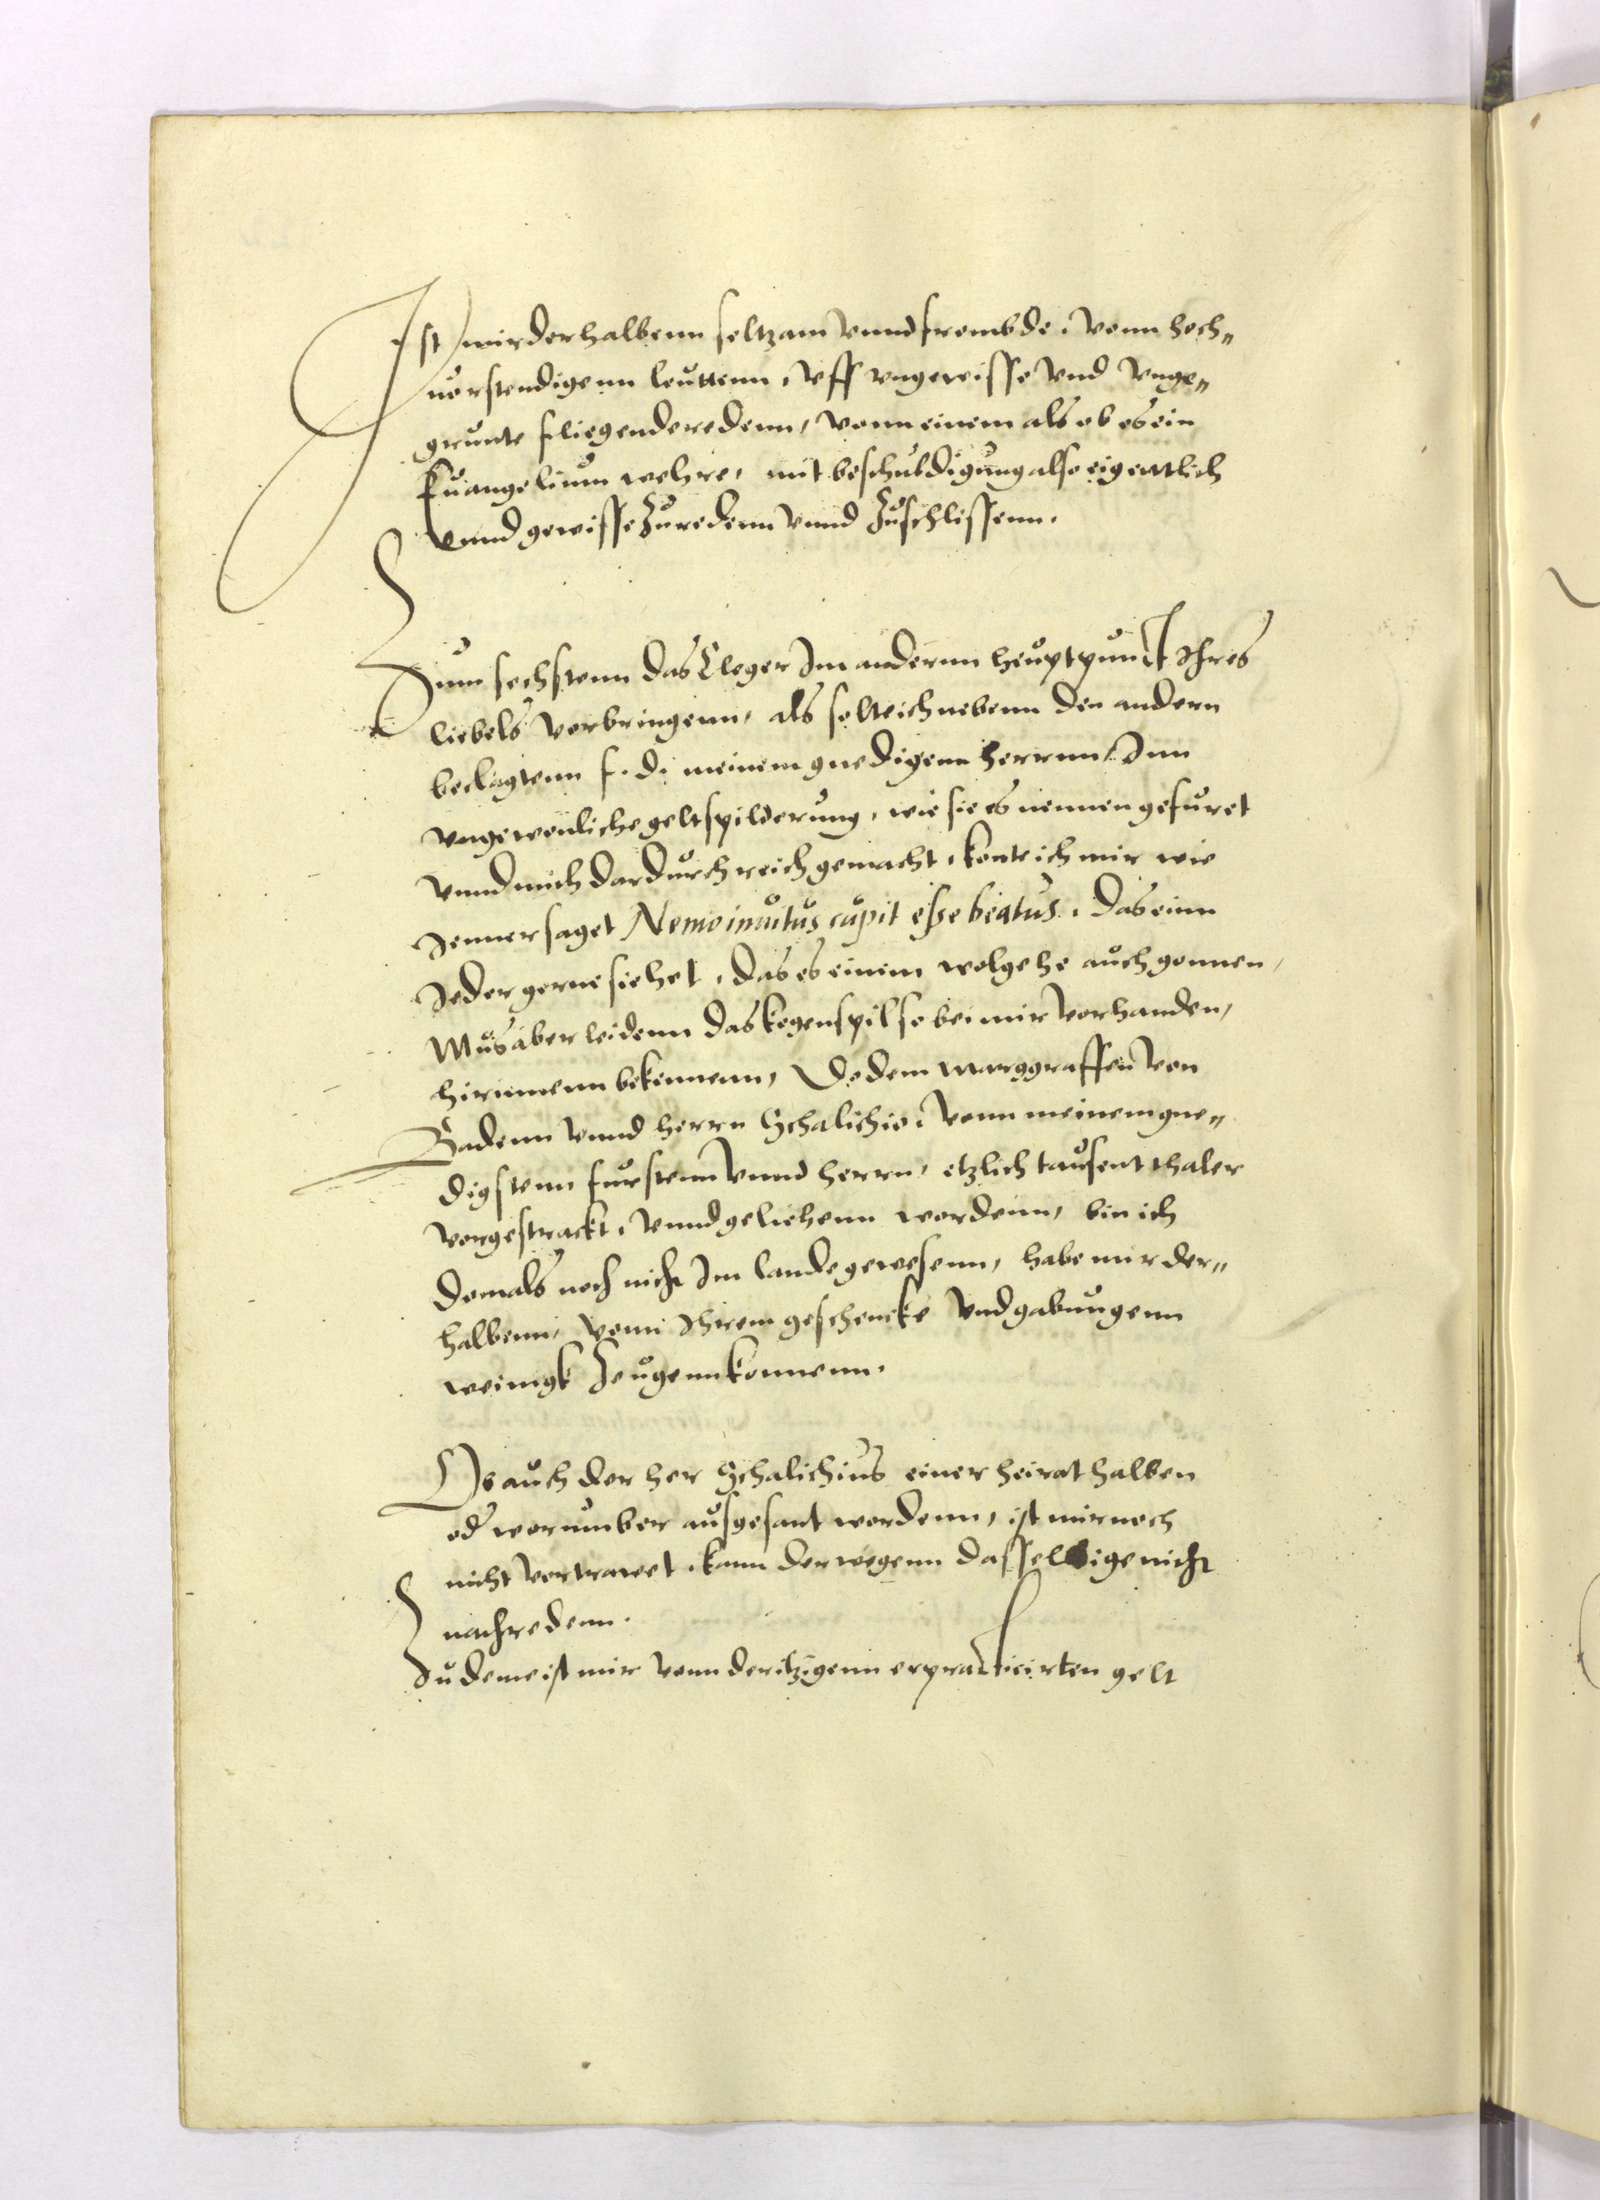 Ist mir derhalbenn seltzam vnnd frembde, vonn hoch„
uorstendigenn leuttenn, vff vngewisse vnd vnge„
grunte fliegende redenn, vonn einem als ob es ein
Euangelium wehre, mit beschuldigung also eigentlich
vnnd gewisse zuredenn vnnd zuschlissenn.
Zum sechstenn das Cleger Im andernn heuptpunct Ihres
liebels vorbringenn, als solte ich nebenn den andern
beclagtenn f. d. meinem gnedigenn herrnn, Inn
vngewonliche geltspilderung, wie sie es nennen gefuret
vnnd mich dardurch reich gemacht, konte ich mir wie
Jenner saget Nemo inuitus cupit esse beatus, das einn
Jeder gerne siehet, das es einem wolgehe auch gonnen,
Mus aber leidenn das kegenspil so bei mir vorhanden,
hirinnenn bekennenn, Do dem Marggraffen von
Badenn vnnd herrn Schalichio, vonn meinem gne„
digstenn furstenn vnnd herrn, etzlich tausent thaler
vorgestrackt, vnnd geliehenn wordenn, bin ich
domals noch nicht Im lande gewesenn, habe mir der„
halbenn, vonn Ihrem geschencke vnd gabungenn
wenigk Zeugenn konnenn.
Ob auch der her Schalichius einer heirat halben
od worumber ausgesant wordenn, ist mir noch
nicht vertrawet, kann derwegenn dasselbige nicht
nachredenn.
Zu deme ist mir vonn der itzigenn erpracticirten gelt